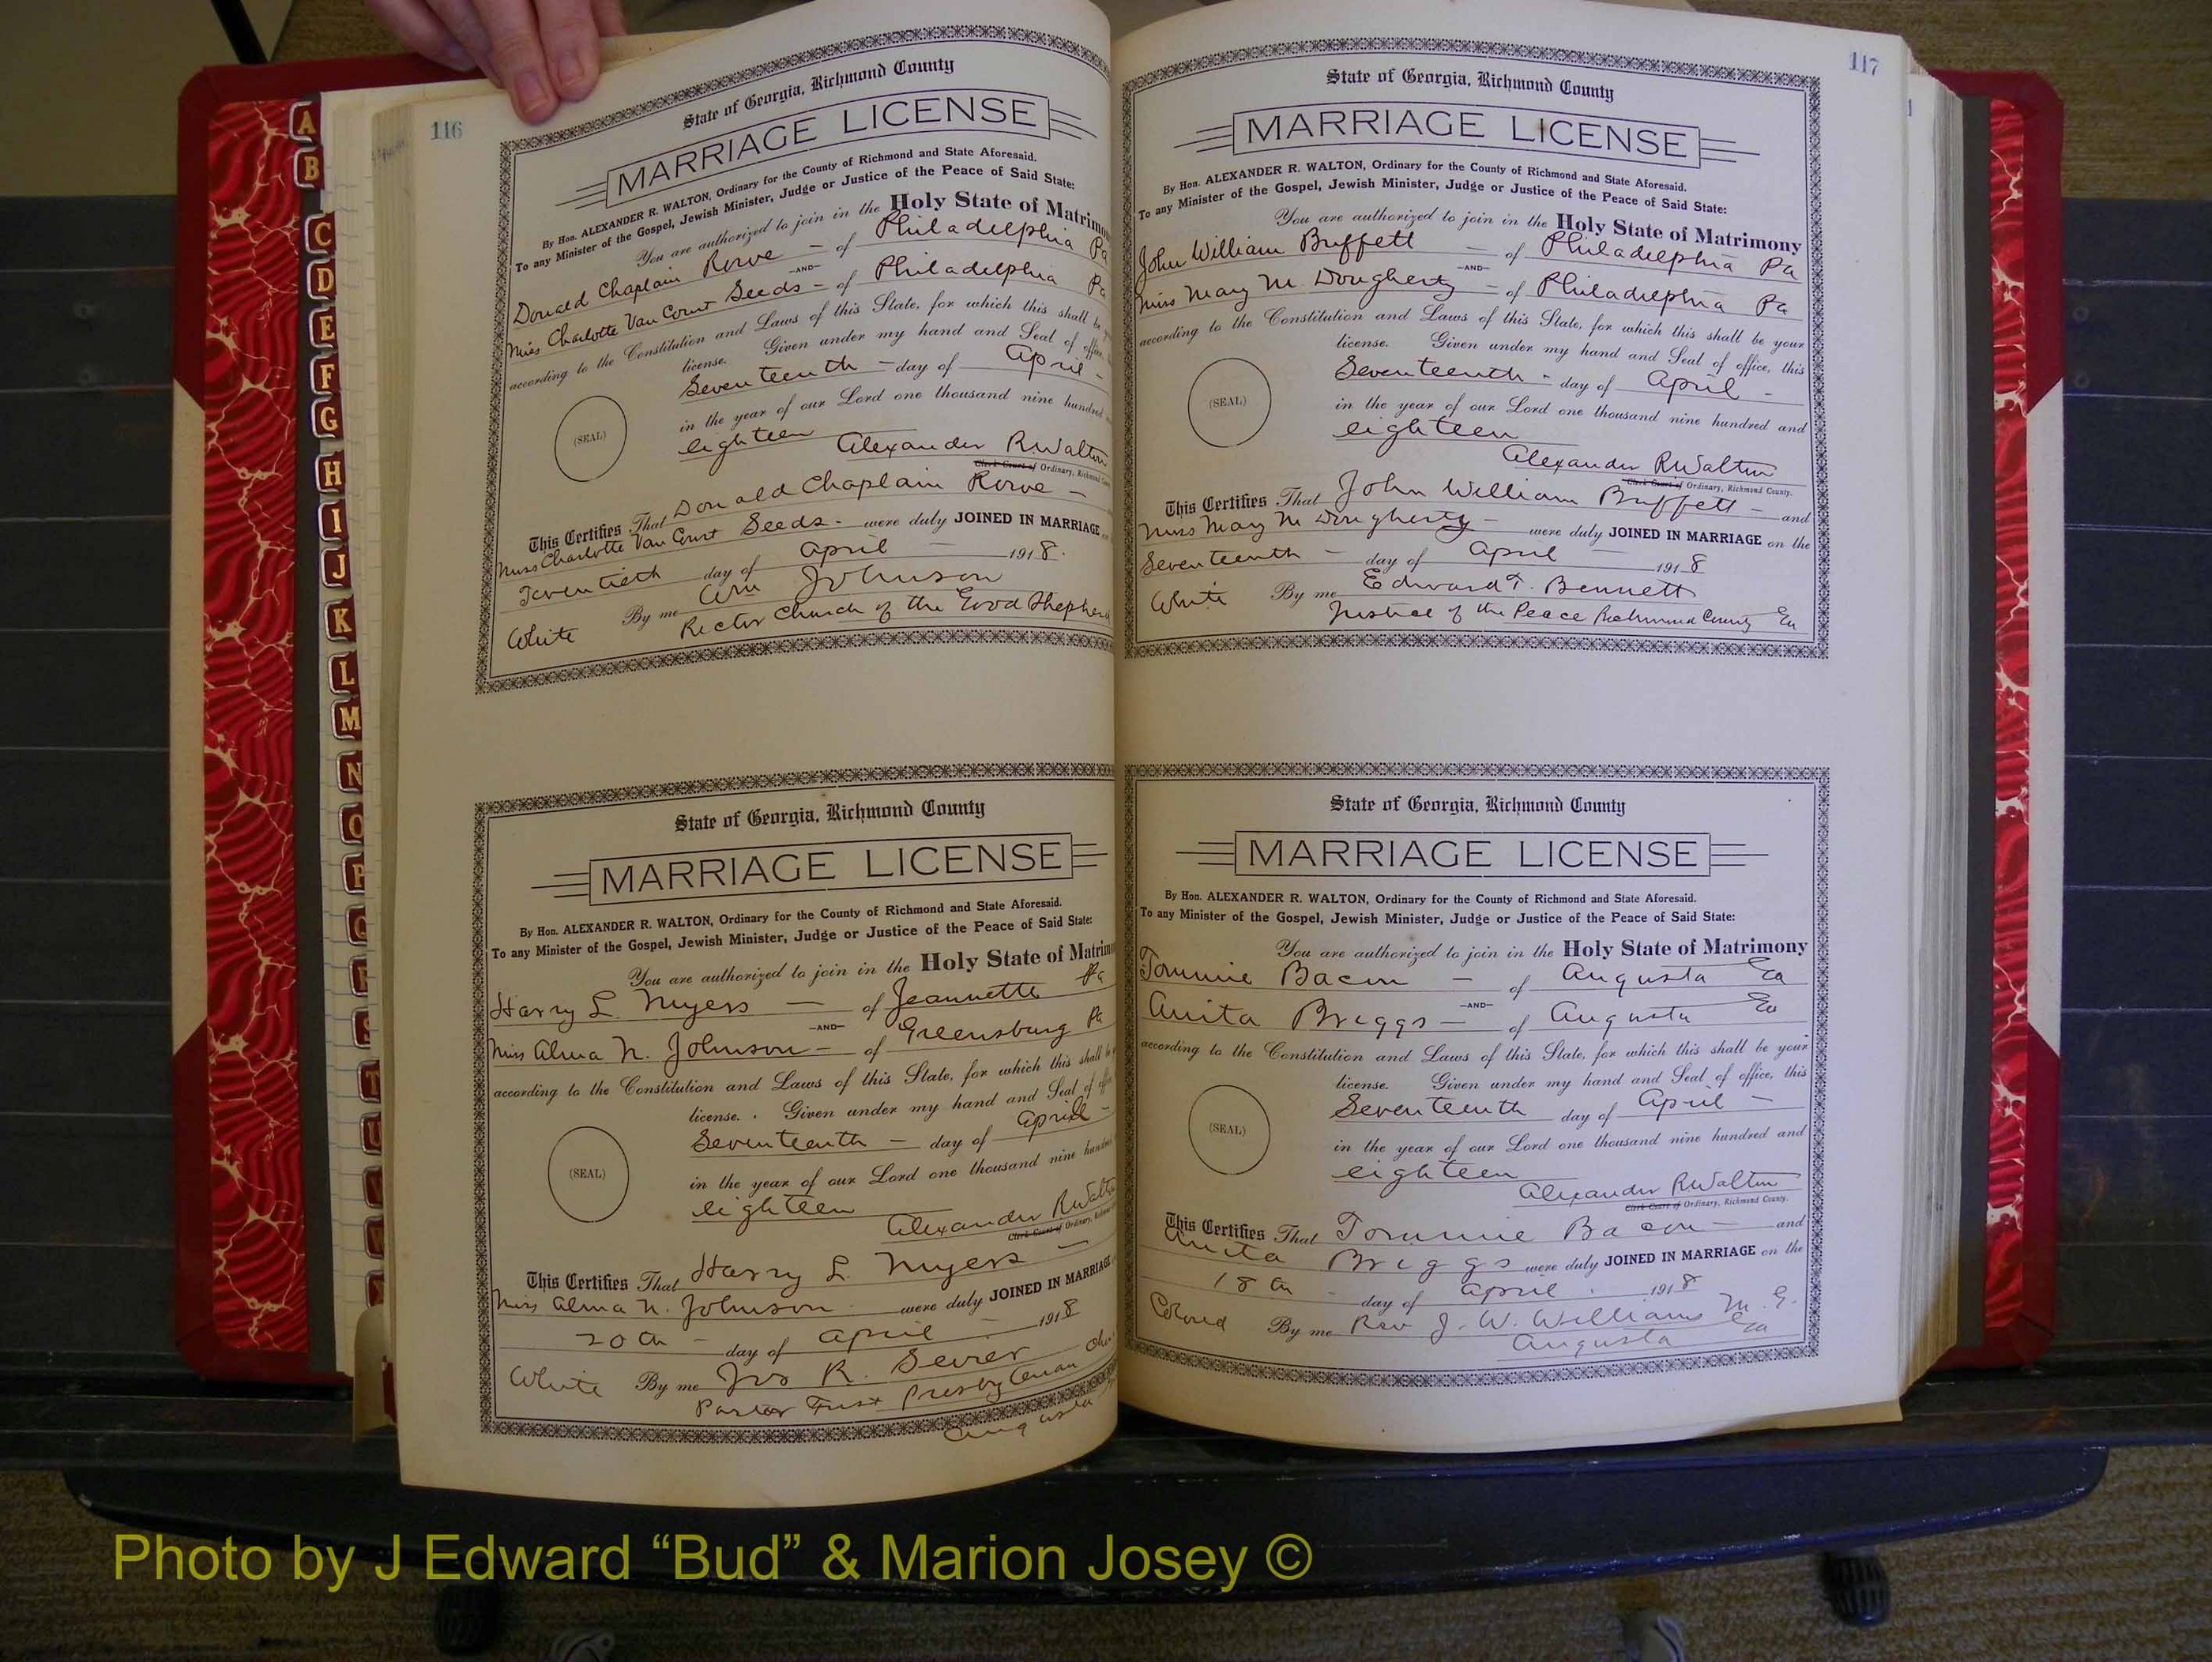 116
State of Georgia, Richmond County
MARRIAGE LICENSE
By Hon. ALEXANDER R. WALTON, Ordinary for the County of Richmond and State Aforesaid.
To any Minister of the Gospel, Jewish Minister, Judge or Justice of the Peace of Said State:
You are authorized to join in the Holy State of Matrimo
Donald Chaplain Rowe - of Philadelphia Pa
-AND-
Miss Charlotte Van Court Seeds - of Philadelphia Pa
according to the Constitution and Laws of this State, for which this shall be
license. Given under my hand and Seal of office,
Seventeenth - day of April -
(SEAL)
in the year of our Lord one thousand nine hundred
eighteen
Alexander R Walton
Clerk Court of Ordinary, Richmond
This Certifies That Donald Chaplain Rowe -
Miss Charlotte Van Court Seeds - were duly JOINED IN MARRIAGE
Twentieth day of April - 1918.
White By me Wm Johnson
Rector Church of the Good Shepherd
State of Georgia, Richmond County
MARRIAGE LICENSE
By Hon. ALEXANDER R. WALTON, Ordinary for the County of Richmond and State Aforesaid.
To any Minister of the Gospel, Jewish Minister, Judge or Justice of the Peace of Said State:
You are authorized to join in the Holy State of Matrim
Harry L. Myers - of Jeannette Pa
-AND-
Miss Alma N. Johnson - of Greensburg Pa
according to the Constitution and Laws of this State, for which this shall
license. Given under my hand and Seal of
Seventeenth - day of April -
(SEAL)
in the year of our Lord one thousand nine
eighteen
Alexander R Walton
Clerk Court of Ordinary,
This Certifies That Harry L. Myers -
Miss Alma N. Johnson were duly JOINED IN MARRIAGE
20th - day of April - 1918
White By me Jno R. Sevier
Pastor First Presbyterian
Augusta
117
State of Georgia, Richmond County
MARRIAGE LICENSE
By Hon. ALEXANDER R. WALTON, Ordinary for the County of Richmond and State Aforesaid.
To any Minister of the Gospel, Jewish Minister, Judge or Justice of the Peace of Said State:
You are authorized to join in the Holy State of Matrimony
John William Buffett - of Philadelphia Pa
-AND-
Miss Mary M. Dougherty - of Philadelphia Pa
according to the Constitution and Laws of this State, for which this shall be your
license. Given under my hand and Seal of office, this
Seventeenth - day of April -
(SEAL)
in the year of our Lord one thousand nine hundred and
eighteen
Alexander R Walton
Clerk Court of Ordinary, Richmond County.
This Certifies That John William Buffett - and
Miss Mary M Dougherty - were duly JOINED IN MARRIAGE on the
Seventeenth - day of April - 1918
White By me Edward T. Bennett
Justice of the Peace Richmond County Ga
State of Georgia, Richmond County
MARRIAGE LICENSE
By Hon. ALEXANDER R. WALTON, Ordinary for the County of Richmond and State Aforesaid.
To any Minister of the Gospel, Jewish Minister, Judge or Justice of the Peace of Said State:
You are authorized to join in the Holy State of Matrimony
Tommie Bacon - of Augusta Ga
-AND-
Anita Briggs - of Augusta Ga
according to the Constitution and Laws of this State, for which this shall be your
license. Given under my hand and Seal of office, this
Seventeenth day of April -
(SEAL)
in the year of our Lord one thousand nine hundred and
eighteen
Alexander R Walton
Clerk Court of Ordinary, Richmond County.
This Certifies That Tommie Bacon - and
Anita Briggs were duly JOINED IN MARRIAGE on the
18th - day of April . 1918
Colored By me Rev J. W. Williams M. G.
Augusta Ga
A
B
C
D
E
F
G
H
I
J
K
L
M
N
O
P
Q
R
S
T
U
V
W
Photo by J Edward “Bud” & Marion Josey ©